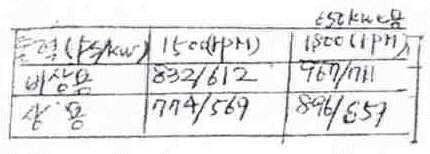 650kw용
출력(PS/kw) 1500(rPM) 1800(rPM)
비상용 832/612 967/711
상용 774/569 896/657